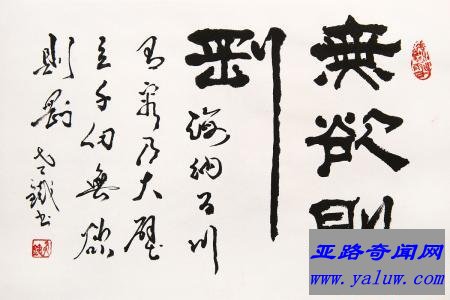 無欲則
剛
海納百川
有容乃大壁
立千仞無欲
則剛
亚路奇闻网
www.yaluw.com